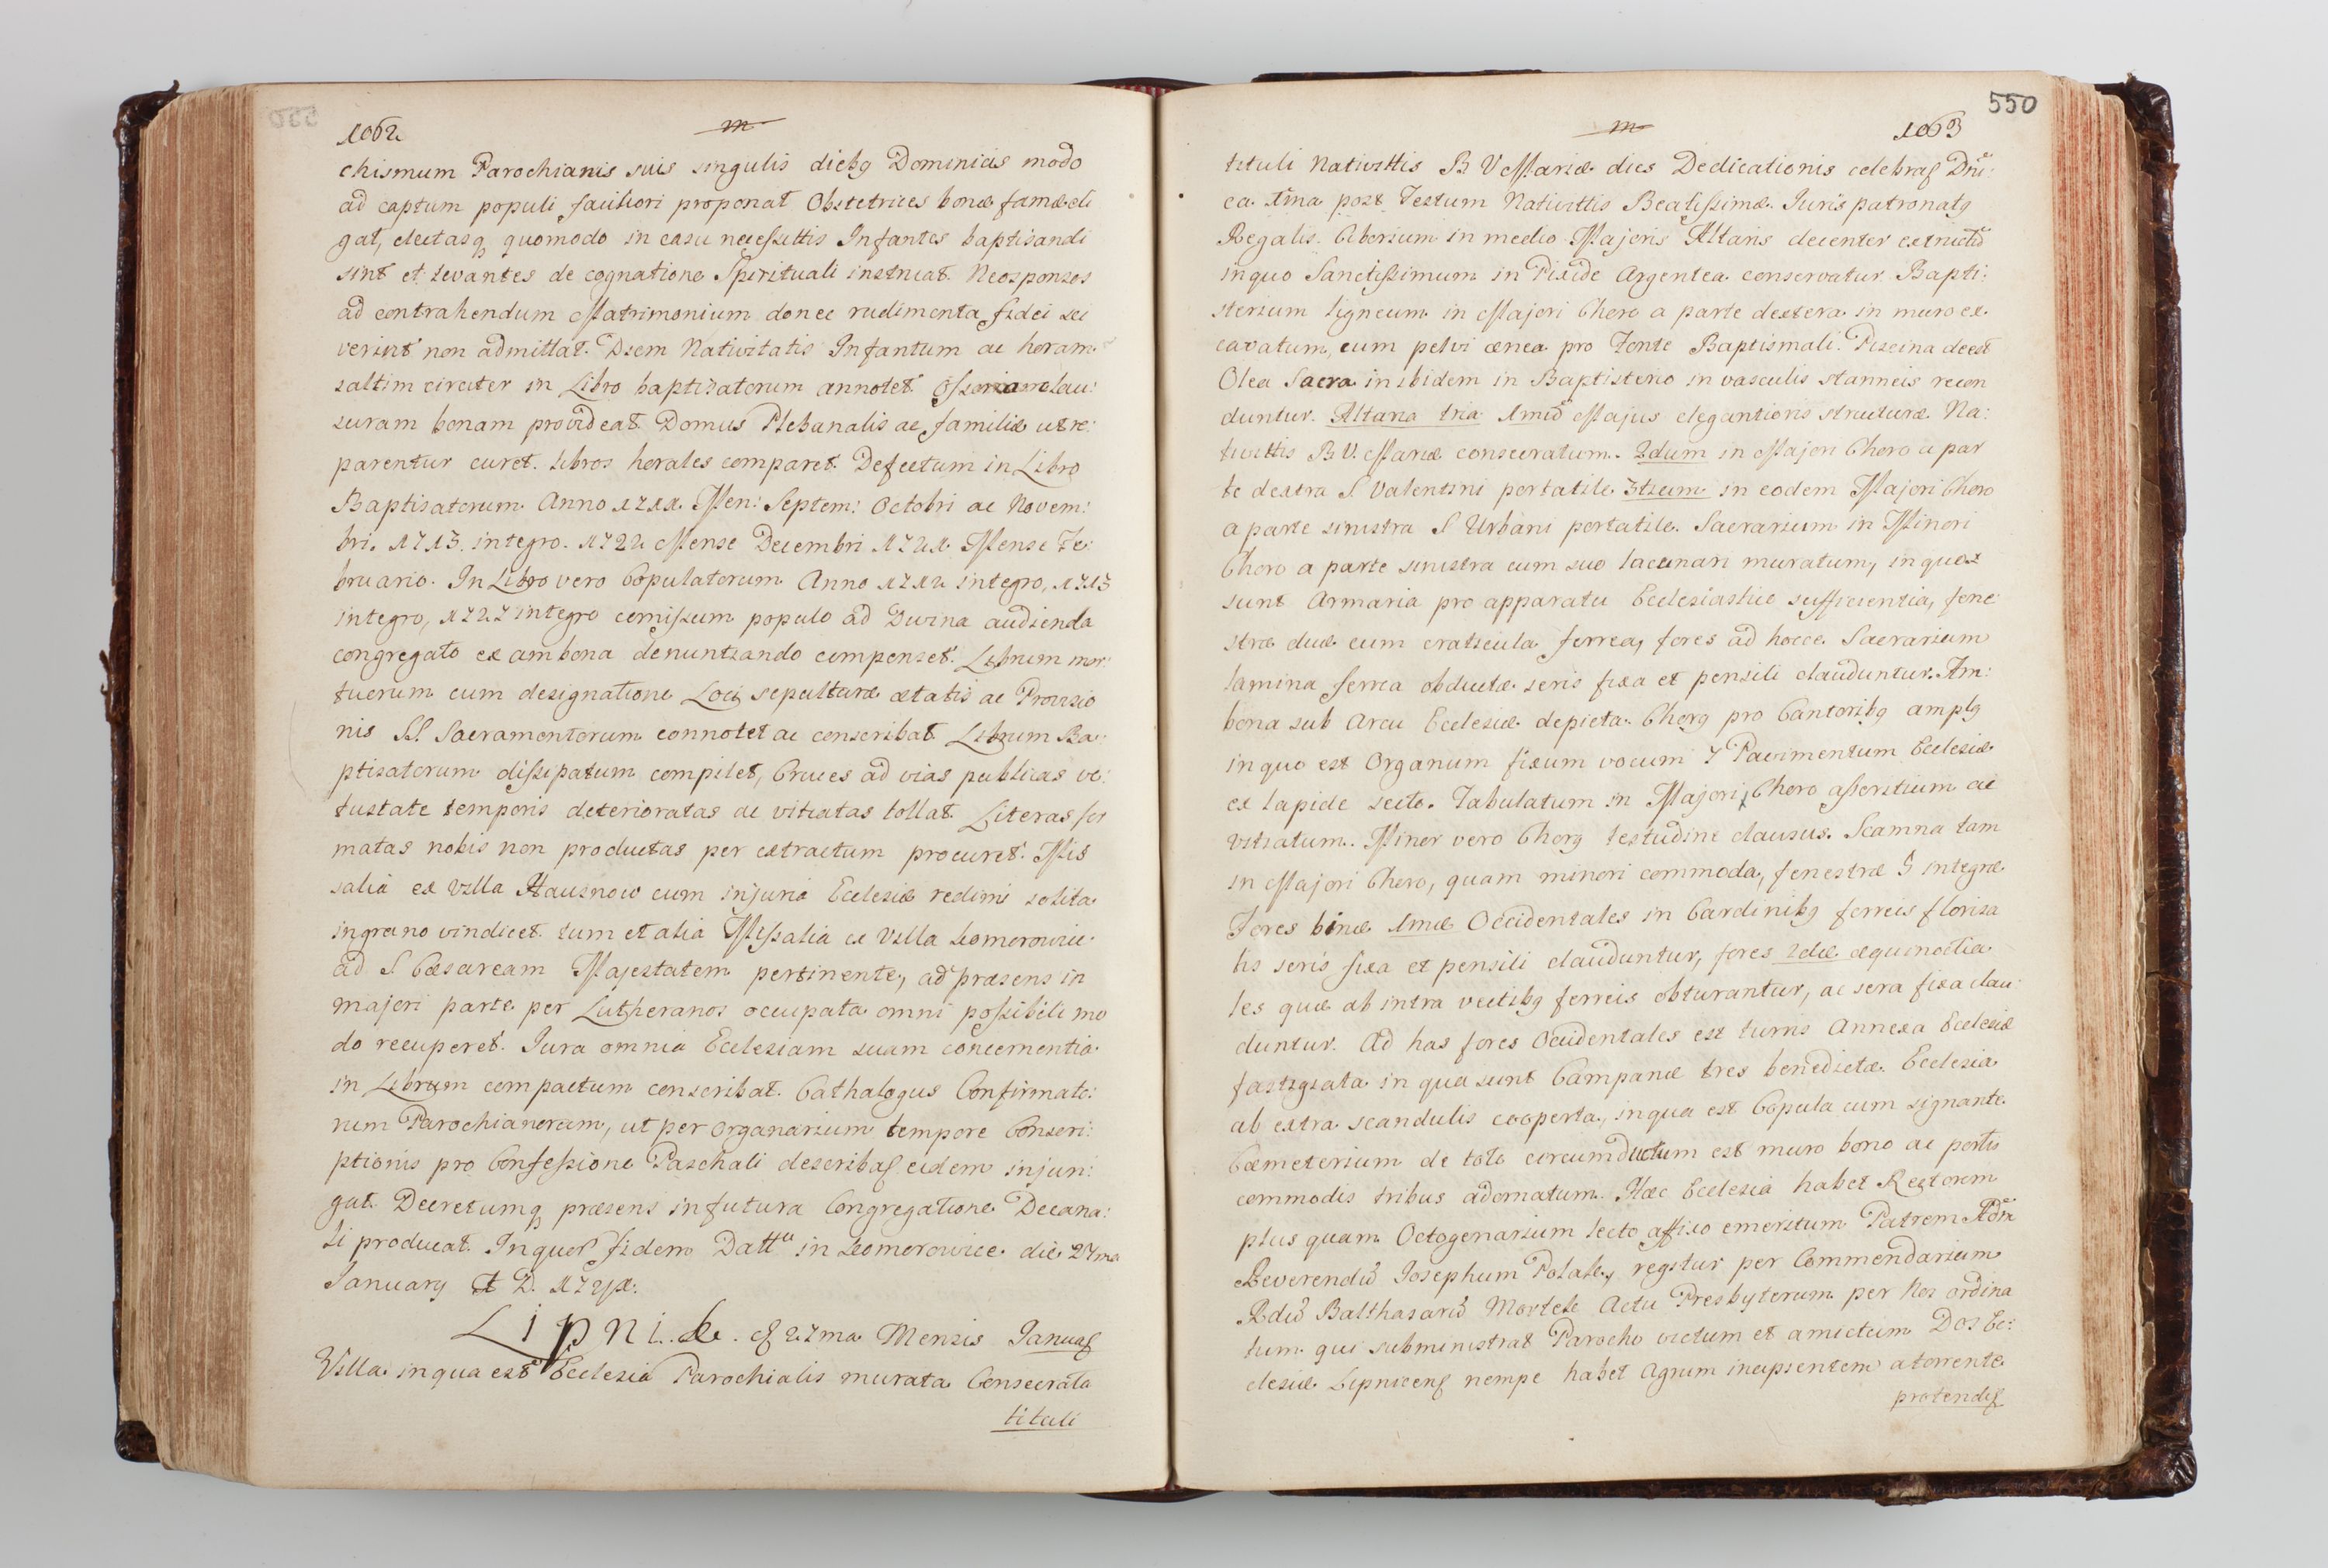 1062
m
chismum Parochianis suis singulis diebq Dominicis modo
ad captum populi faciliori proponat Obstetrices bonæ famæ eli
gat, electasq quomodo in casu necessittis Infantes baptisandi
sint et levantes de cognatione Spirituali instruat. Neosponsos
ad contrahendum Matrimonium donec rudimenta fidei sci
verint non admittat. Diem Nativitatis Infantum ac horam
saltim circiter in Libro baptizatorum annotet. Ossoriam clau:
suram bonam provideat Domus Plebanalis ac familiæ ut re:
parentur curet. Libros horales comparet. Defectum in Libro
Baptisatorum Anno 1711. Men: Septem: Octobri ac Novem:
bri. 1713. integro. 1722 Mense Decembri 1721. Mense Fe:
bruario. In Libro vero Copulatorum Anno 1712 integro, 1713
integro, 1727 integro comissum populo ad Divina audienda
congregato ex ambona denuntiando compenset. Librum mor:
tuorum cum designatione Loci sepulturæ ætatis ac Provisio
nis SS. Sacramentorum connotet ac conscribat Librum Ba:
ptisatorum dissipatum compilet, Cruces ad vias publicas ve:
tustate temporis deterioratas ac vitiatas tollat. Literas for
matas nobis non productas per extractum procuret. Mis
salia ex Villa Hausnow cum injuria Ecclesiæ redimi solita
in grano vindicet. tum et alia Missalia ex Villa Komorowice
ad S Cæsaream Majestatem pertinente, ad præsens in
majori parte per Lutheranos occupata omni possibili mo
do recuperet. Jura omnia Ecclesiam suam concernentia
in Librum compactum conscribat. Cathalogus Confirmato:
rum Parochianorum, ut per Organarium tempore Conscri:
ptionis pro Confessione Paschali describat eidem injun:
gat. Decretumq præsens in futura Congregatione Decana:
li producat. In quor fidem Datt in Komorowice die 27ma
January A D.
Lipnik. 27ma Mensis Januar
Villa in qua est Ecclesia Parochialis murata Consecrata
tituli
550
m
1063
tituli Nativittis B V Mariæ dies Dedicationis celebrat Dni:
ca 1ma post Festum Nativittis Beatissimæ. Juris patronatq
Regalis. Ciborium in medio Majoris Altaris decenter extructu
in quo Sanctissimum in Pixide Argentea conservatur Bapti:
sterium ligneum in Majori Choro a parte dextera in muro ex
cavatum, cum pelvi ænea pro Fonte Baptismali. Piscina deest
Olea Sacra in ibidem in Baptisterio in vasculis stanneis recon
duntur. Altaria tria 1mu Majus elegantioris structuræ Na:
tivittis B V. Mariæ consecratum. 2dum in Majori Choro a par
te dextra S Valentini portatile 3tium in eodem Majori Choro
a parte sinistra S Urbani portatile. Sacrarium in Minori
Choro a parte sinistra cum suo lacunari muratum, in quo
sunt Armaria pro apparatu Ecclesiastico sufficientia, fene
stræ duæ cum craticula ferrea, fores ad hocce Sacrarium
lamina ferrea obductæ seris fixa et pensili clauduntur. Am:
bona sub Arcu Ecclesiæ depicta. Chorq pro Cantoribq amplq
in quo est Organum fixum vocum 7 Pavimentum Ecclesiæ
ex lapide secto. Tabulatum in Majori Choro asseritium ac
vitiatum. Minor vero Chorq testudine clausus. Scamna tam
in Majori Choro, quam minori commoda, fenestræ 9 integræ
Fores binæ 1mæ Occidentales in Cardinibq ferreis floriza
tis seris fixa et pensili clauduntur, fores 2dæ æquinoctia
les quæ ab intra vectibq ferreis obturantur, ac sera fixa clau:
duntur. Ad has fores Occidentales est turris Annexa Ecclesiæ
fastigiata in qua sunt Campanæ tres benedictæ. Ecclesia
ab extra scandulis cooperta, in qua est Copula cum signante
Cœmeterium de toto circumductum est muro bono ac portis
commodis tribus adornatum. Hæc Ecclesia habet Rectorem
plus quam Octogenarium lecto affixo emeritum Patrem Adm
Reverendu Josephum Polak, regitur per Commendarium
Rdu Balthasaru Mortek Actu Presbyterum per Nos ordina
tum qui subministrat Parocho victum et amictum Dos Ec:
clesiæ Lipnicens nempe habet Agrum incipientem a torrente
protendit